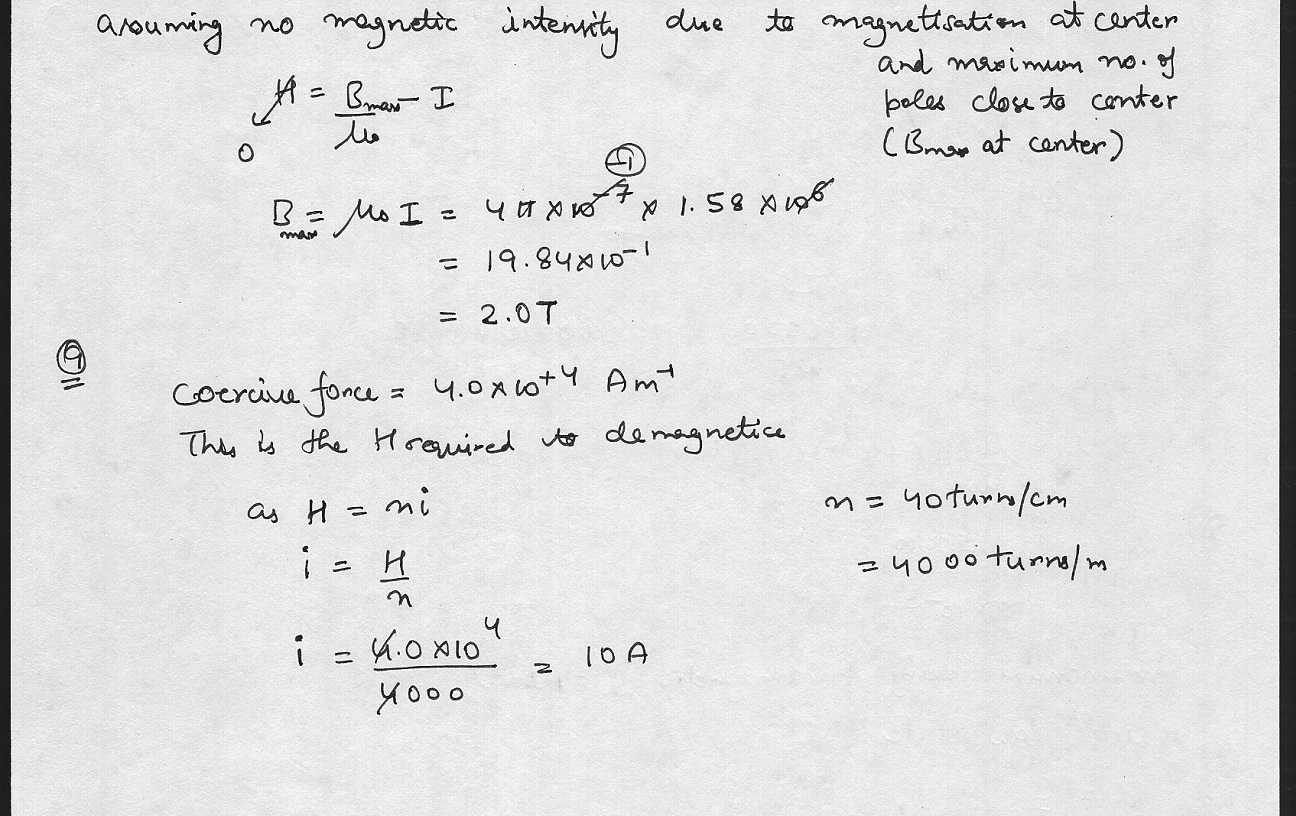 assuming no magnetic intensity due to magnetisation at center
and maximum no. of
poles close to center
(Bmax at center)
H = Bmax/μ0 - I
0
-1
Bmax = μ0 I = 4π×10^-7 × 1.58 ×10^6
= 19.84×10^-1
= 2.0T
9
Coercive force = 4.0×10^+4 Am^-1
This is the H required to demagnetice
as H = ni
n = 40turns/cm
i = H/n
= 4000 turns/m
i = 4.0×10^4/4000 = 10A